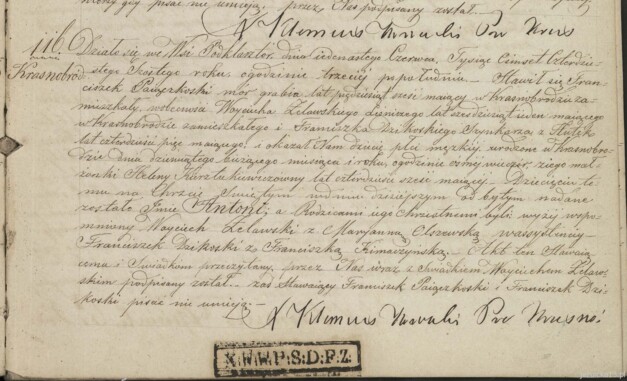 gdy pisać nie umieją, przez Nas podpisany został.—
X Klemens Kowalski Pro Kras
116.
Krasnobród
Działo się we Wsi Podklasztor, dnia iedenastego Czerwca, Tysiąc Ośmset Czterdzie-
stego Szóstego roku, o godzinie trzeciéj po południu.— Stawił się Fran-
ciszek Paiączkoski lat pięćdziesiąt sześć maiący w Krasnobrodzie za-
mieszkały, w obecności Woyciecha Zelawskiego lat sześćdziesiąt ieden maiącego
w Krasnobrodzie zamieszkałego i Franciszka Dzikoskiego Szynkarza z Hutik
lat czterdzieści pięć maiącego; i okazał Nam dziecię płci męzkiéj, urodzone w Krasnobro-
dzie dnia dziewiątego bieżącego miesiąca i roku, o godzinie ósméj wieczór, z iego mał-
żonki Heleny lat czterdzieści sześć maiącéj.— Dziecięciu te-
mu na Chrzcie Świętym w dniu dzisiejszym odbytym nadane
zostało Imie Antoni, a Rodzicami iego Chrzestnemi byli wyżéj wspo-
mniony Woyciech Zelawski z Maryanną Olszewską w assystencyi
Franciszek Dzikoski z Franciszką.— Akt ten Stawaią-
cemu i Świadkom przeczytany, przez Nas wraz z Świadkiem Woyciechem Zelaw-
skim podpisany został.— zaś Stawaiący Franciszek Paiączkoski i Franciszek Dzi-
koski pisać nie umieią.—
X Klemens Kowalski Pro Krasno:
X.W.W.P.S.D.F.Z.